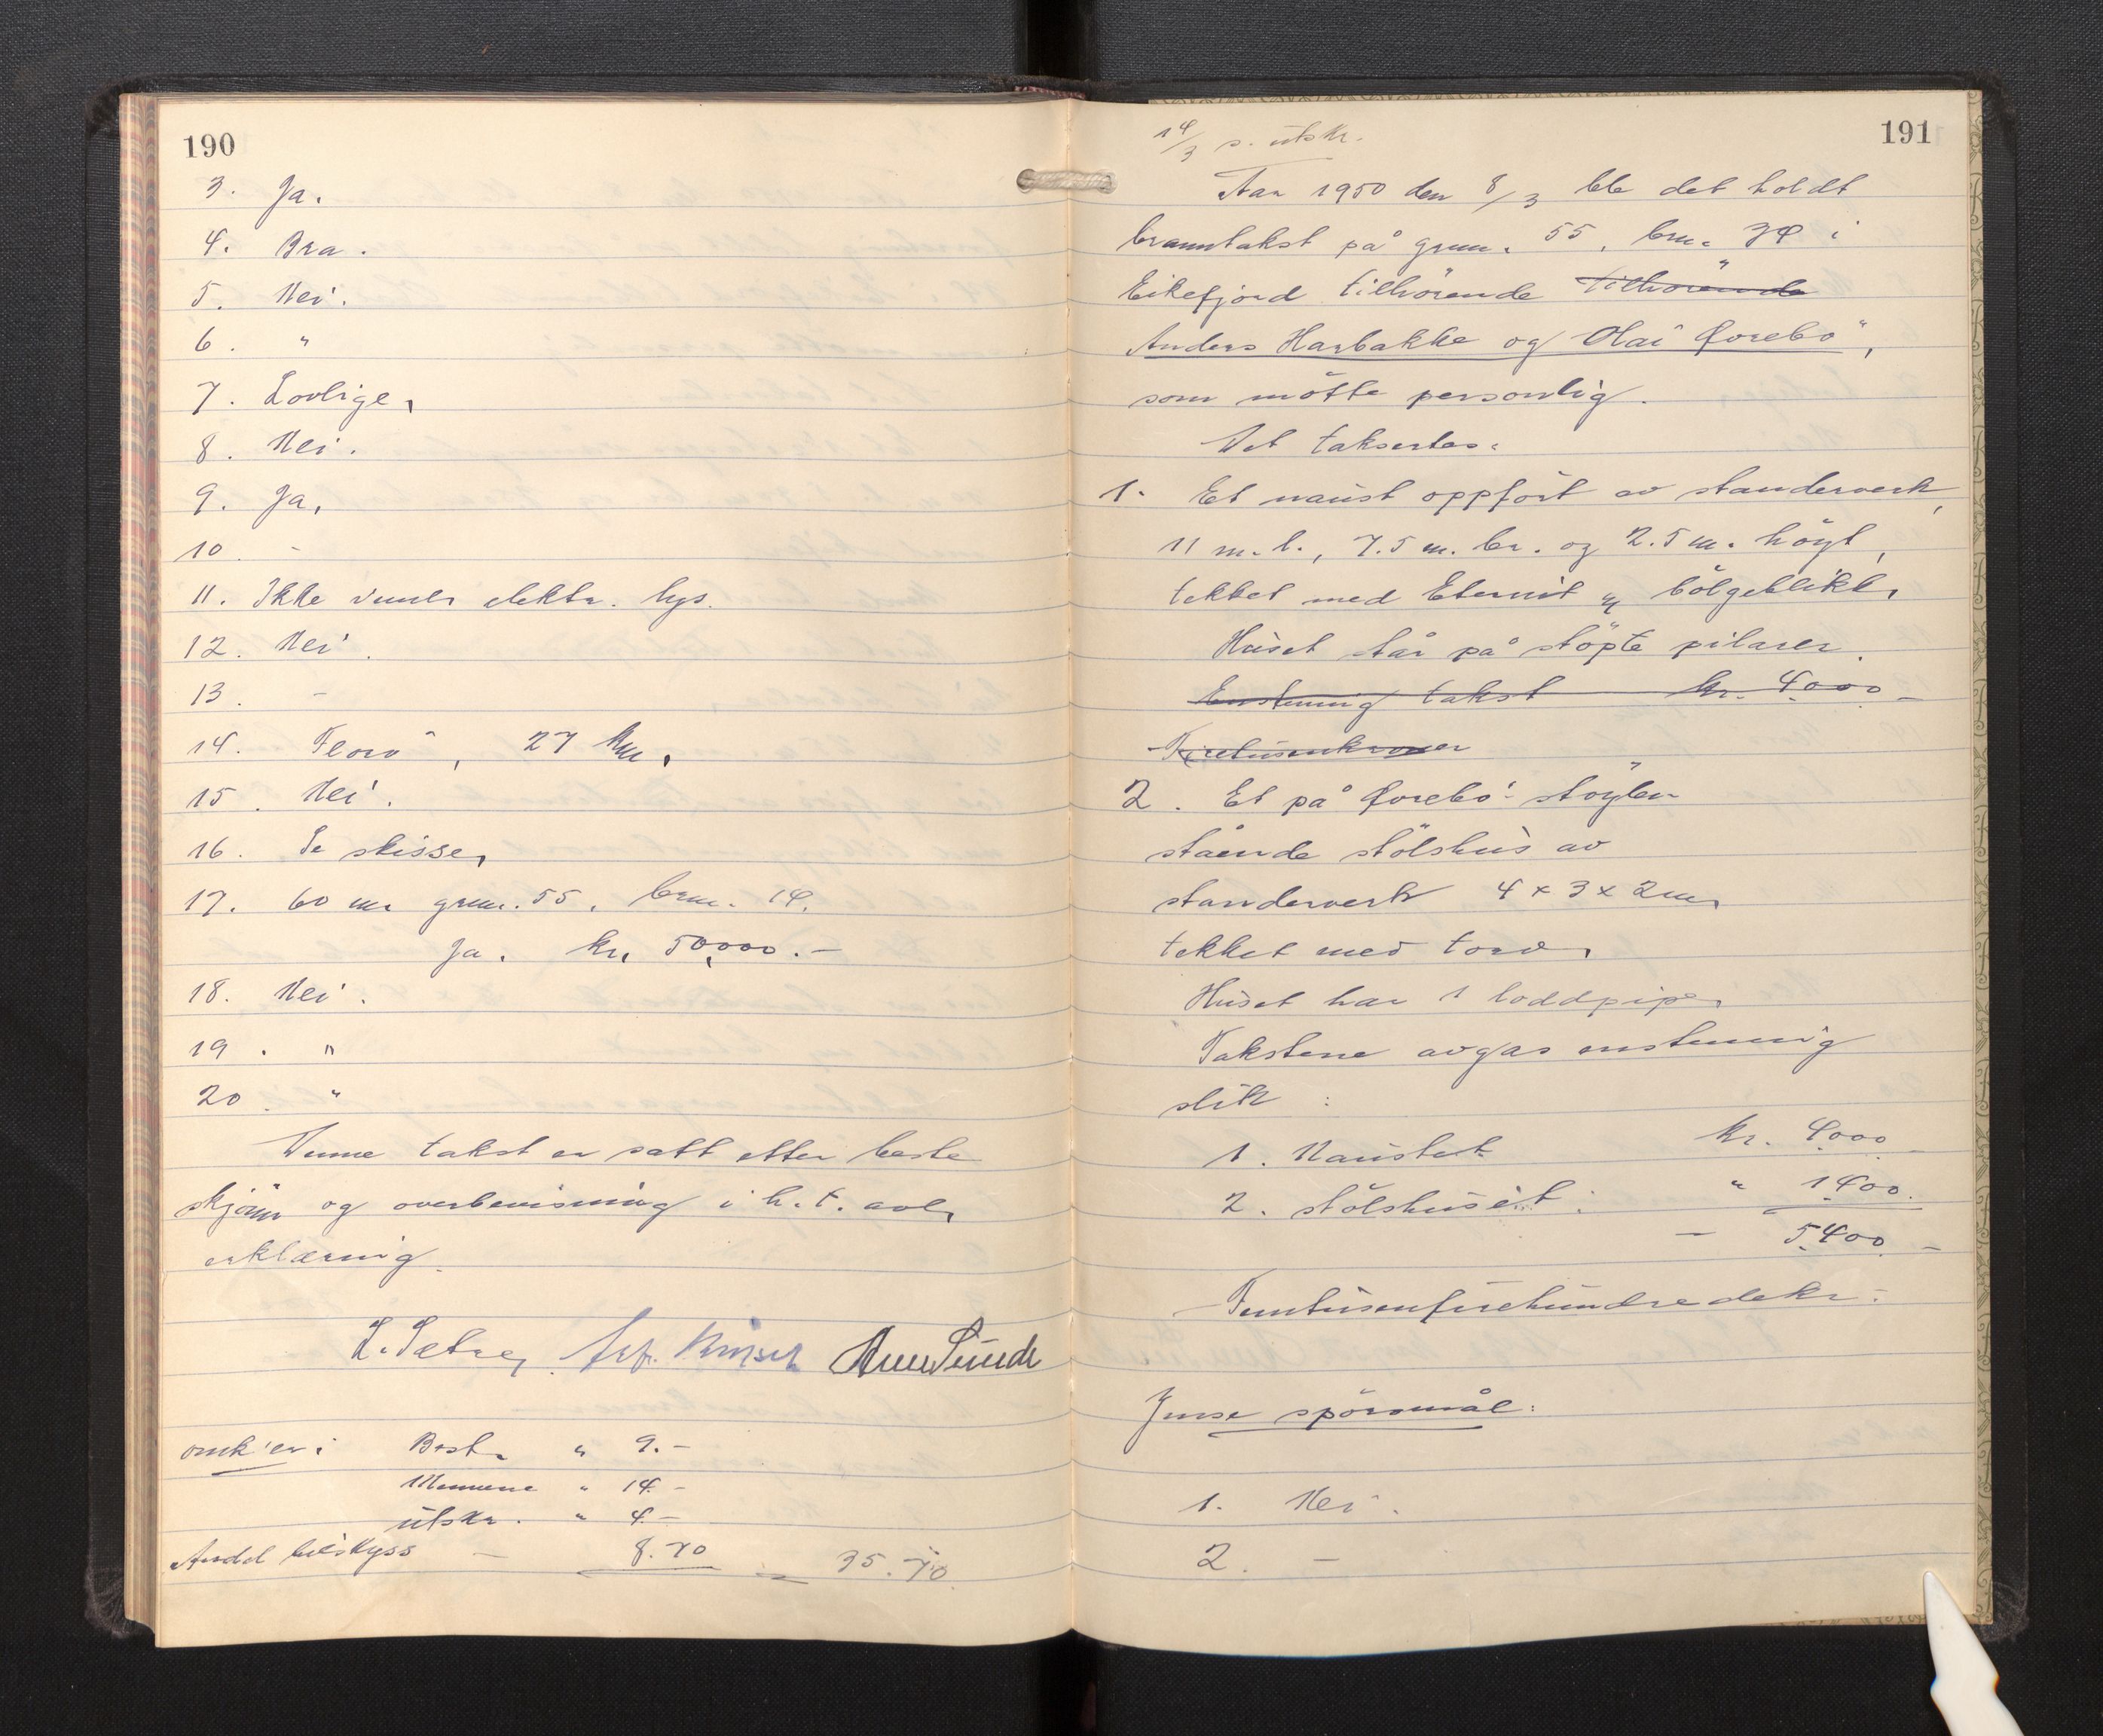 190
3. Ja.
4. Bra.
5. Nei.
6. "
7. Lovlige.
8. Nei.
9. Ja.
10. -
11. Ikke innl. elektr. lys.
12. Nei.
13. -
14. Florö, 27 km.
15. Nei.
16. Se skisse.
17. 60 m gnr. 55, brnr. 14.
Ja. kr. 50,000.-
18. Nei.
19. "
20. "
Denne takst er satt etter beste
skjönn og overbevisning i h.t. avl.
erklæring.
L. Sætre,
omk'er: Best. " 9.-
Mennene " 14.-
utskr. " 4.-
Andel bilskyss — 8.70 = 35.70
191
14/3 s. utskr.
Aar 1950 den 8/3 ble det holdt
branntakst på gnr. 55, brnr. 34 i
Eikefjord tilhörende tilhörende
Anders Harbakke og Olai Forebö,
som mötte personlig.
Det taksertes:
1. Et naust oppfört av standerverk,
11 m. l., 7.5 m. br. og 2.5 m. höyt,
tekket med Eternit og bölgeblikk.
Huset står på stöpte pilarer.
Enstemmig takst kr. 4.000.-
Firetusenkroner
2. Et på Forebö-stöylen
stående stölshus av
standerverk 4 x 3 x 2 m.
tekket med torv.
Huset har 1 loddpipe.
Takstene avgas enstemmig
slik:
1. Naustet kr. 4.000.-
2. stölshuset: " 1.400.
— 5.400.-
Femtusenfirehundredekr.-
Jmse spörsmål:
1. Nei.
2. -